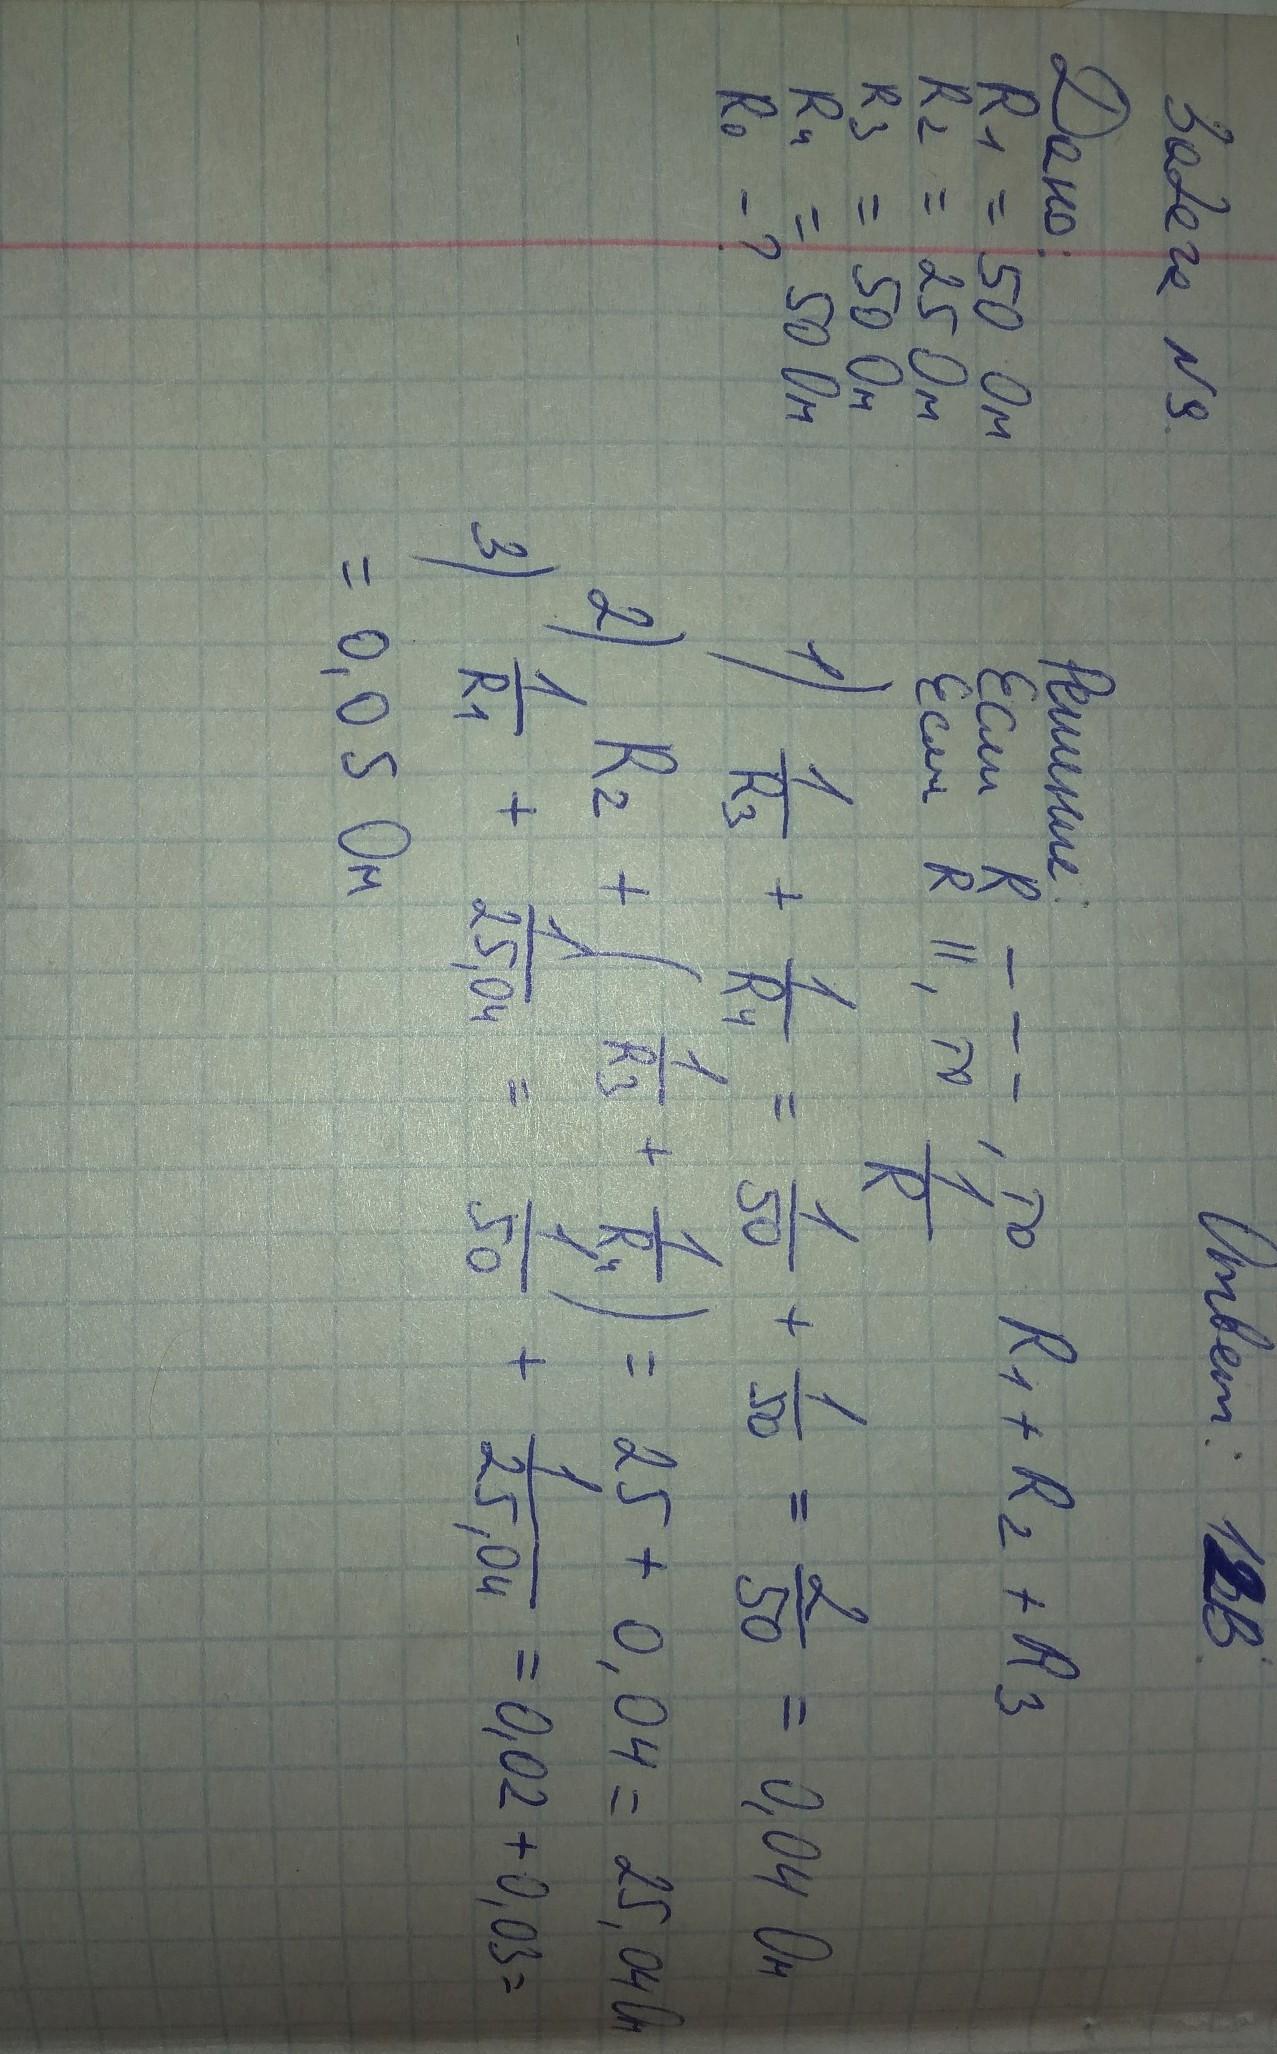 Задача №9.
Ответ: 12В.
Дано:
R1 = 50 Ом
R2 = 25 Ом
R3 = 50 Ом
R4 = 50 Ом
R0 - ?
Решение:
Если R ---, то R1 + R2 + R3
Если R ||, то 1/R
1) 1/R3 + 1/R4 = 1/50 + 1/50 = 2/50 = 0,04 Ом
2) R2 + (1/R3 + 1/R4) = 25 + 0,04 = 25,04 Ом
3) 1/R1 + 1/25,04 = 1/50 + 1/25,04 = 0,02 + 0,03 =
= 0,05 Ом